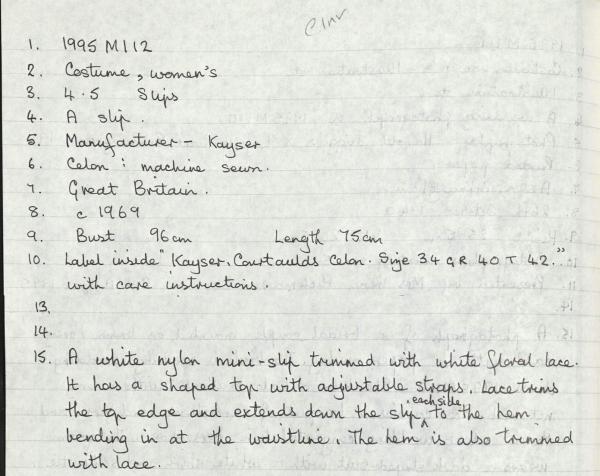 CInv
1. 1995 M112
2. Costume, women's
3. 4.5 Slips
4. A slip.
5. Manufacturer - Kayser
6. Celon : machine sewn.
7. Great Britain.
8. c 1969
9. Bust 96cm Length 75cm
10. Label inside "Kayser. Courtaulds Celon. Size 34 GR 40 T 42."
with care instructions.
13.
14.
15. A white nylon mini-slip trimmed with white floral lace.
It has a shaped top with adjustable straps. Lace trims
the top edge and extends down the slip, each side to the hem
bending in at the waistline. The hem is also trimmed
with lace.